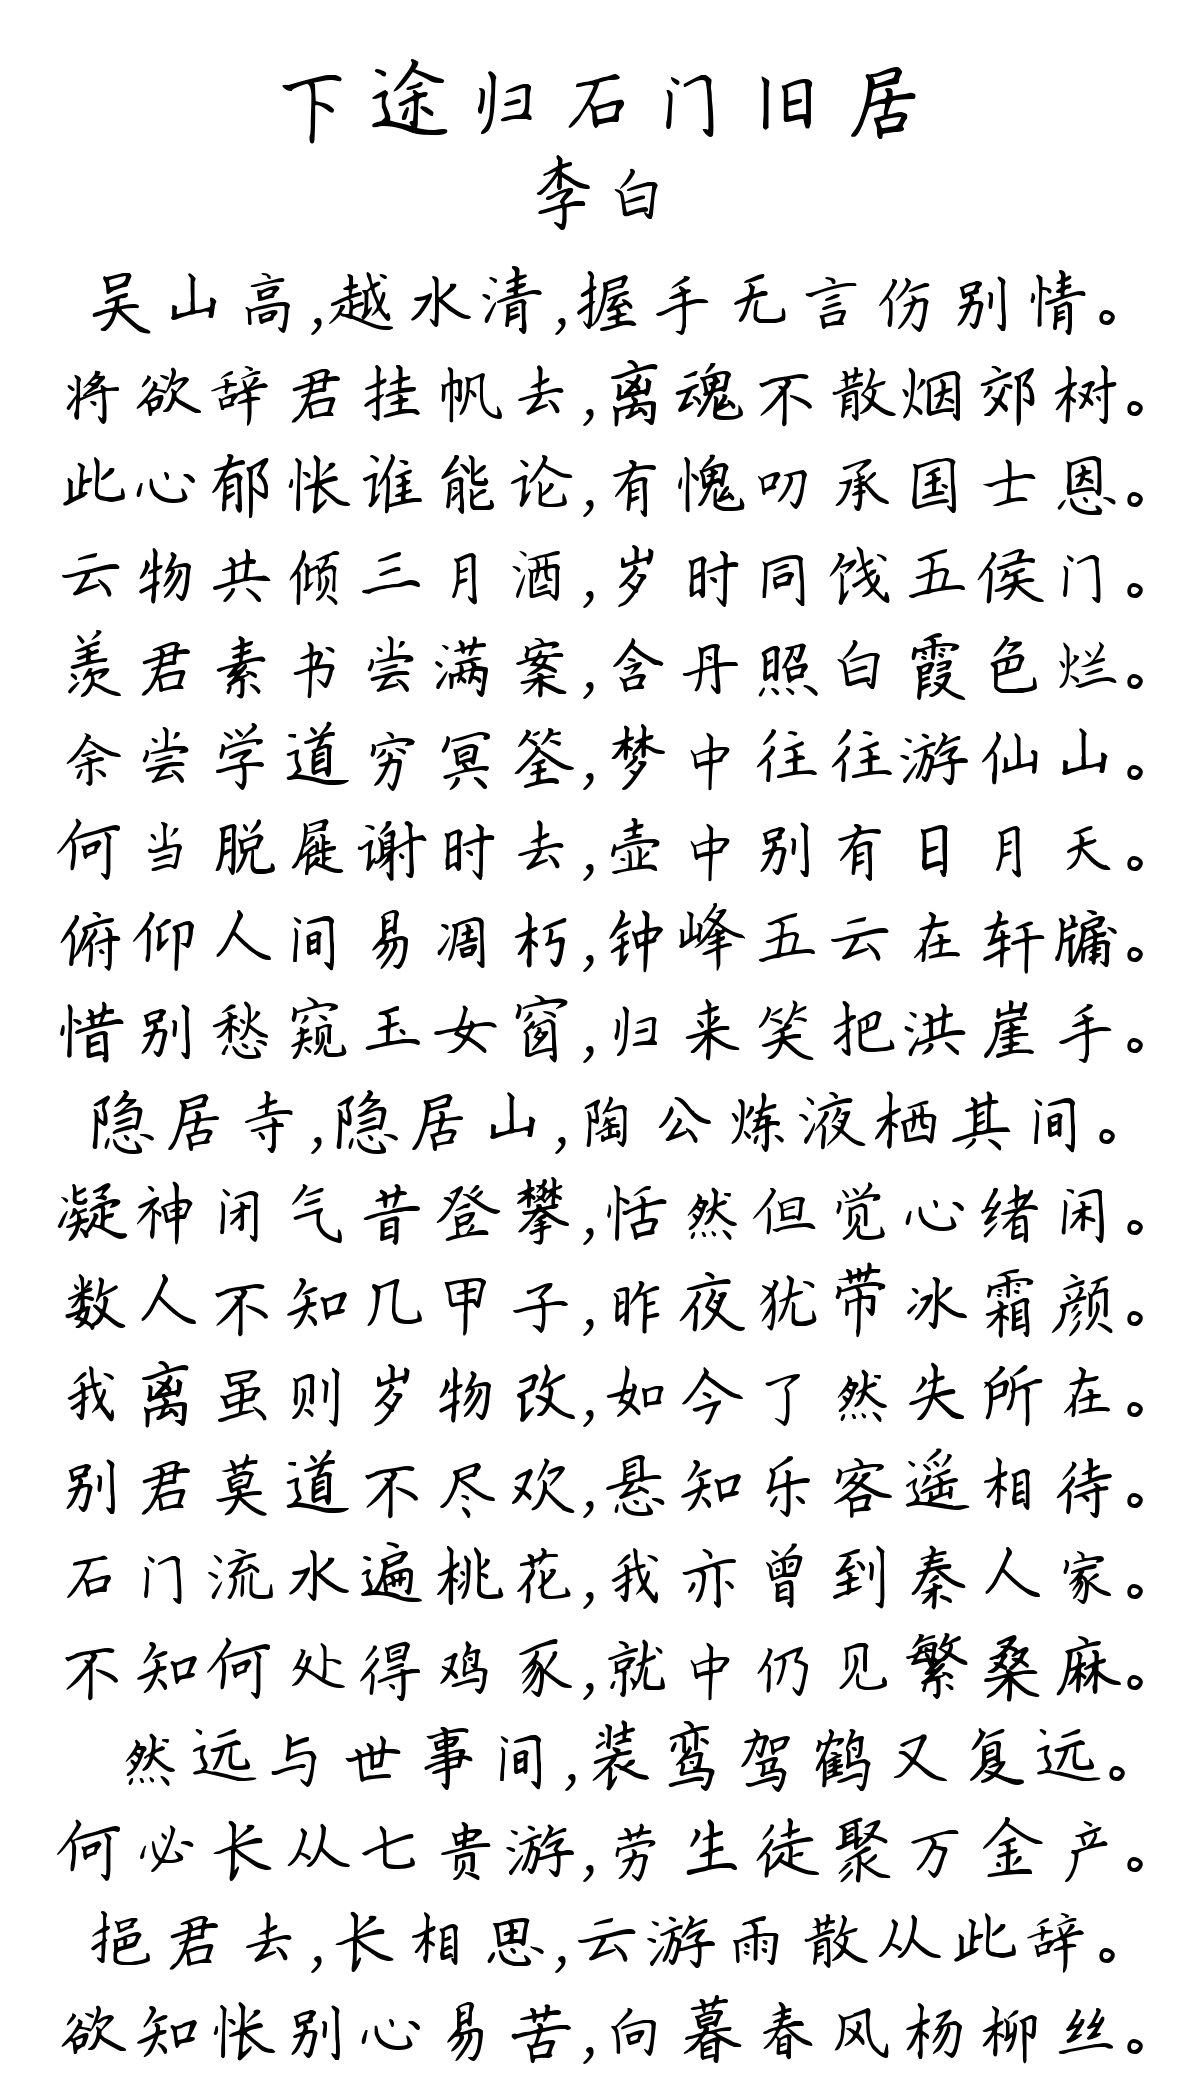 下途归石门旧居
李白
吴山高,越水清,握手无言伤别情。
将欲辞君挂帆去,离魂不散烟郊树。
此心郁怅谁能论,有愧叨承国士恩。
云物共倾三月酒,岁时同饯五侯门。
羡君素书尝满案,含丹照白霞色烂。
余尝学道穷冥筌,梦中往往游仙山。
何当脱屣谢时去,壶中别有日月天。
俯仰人间易凋朽,钟峰五云在轩牖。
惜别愁窥玉女窗,归来笑把洪崖手。
隐居寺,隐居山,陶公炼液栖其间。
凝神闭气昔登攀,恬然但觉心绪闲。
数人不知几甲子,昨夜犹带冰霜颜。
我离虽则岁物改,如今了然失所在。
别君莫道不尽欢,悬知乐客遥相待。
石门流水遍桃花,我亦曾到秦人家。
不知何处得鸡豕,就中仍见繁桑麻。
然远与世事间,装鸾驾鹤又复远。
何必长从七贵游,劳生徒聚万金产。
挹君去,长相思,云游雨散从此辞。
欲知怅别心易苦,向暮春风杨柳丝。